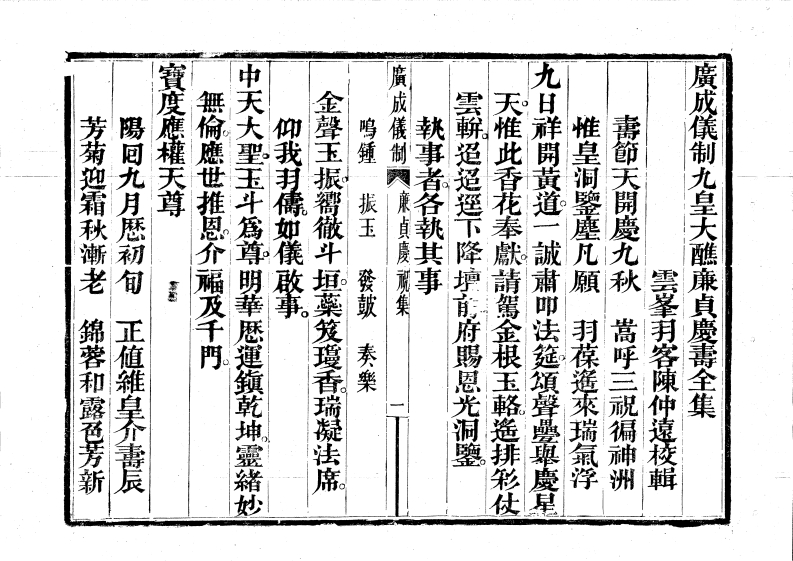 廣成儀制九皇大醮廉貞慶壽全集
雲峯羽客陳仲遠校輯
壽節天開慶九秋　嵩呼三祝徧神洲
惟皇洞鑒塵凡願　羽葆遙來瑞氣浮
九日祥開黃道一誠肅叩法筵。頌聲疊舉慶星
天。惟此香花奉獻。請駕金根玉輅。遙排彩仗
雲軿。迢迢逕下降壇前。府賜恩光洞鑒。
執事者。各執其事
鳴鍾　振玉　發皷　奏樂
廣成儀制　廉貞慶祝集　一
金聲玉振。嚮徹斗垣。蘂笈瓊香。瑞凝法席。
仰我羽儔。如儀啟事。
中天大聖。玉斗爲尊。明華歷運鎭乾坤。靈緒妙
無倫。應世推恩。介福及千門。
寶度應權天尊
陽回九月歷初旬　正值維皇介壽辰
芳菊迎霜秋漸老　錦蓉和露色芳新